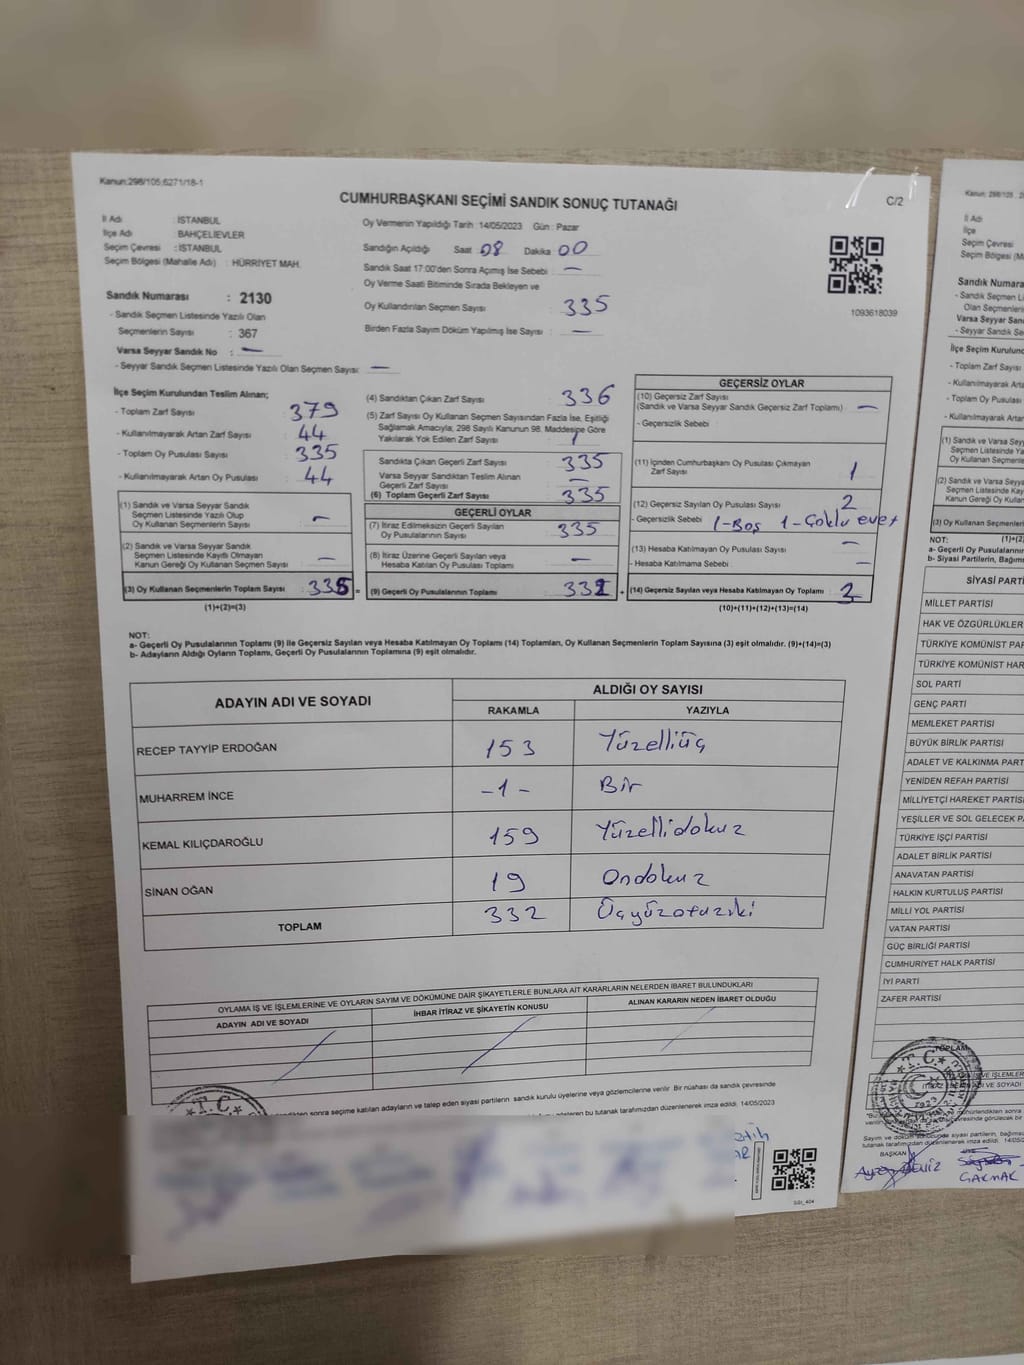 Kanun:298/105;6271/18-1
CUMHURBAŞKANI SEÇİMİ SANDIK SONUÇ TUTANAĞI
C/2
İl Adı : İSTANBUL
İlçe Adı : BAHÇELİEVLER
Seçim Çevresi : İSTANBUL
Seçim Bölgesi (Mahalle Adı) : HÜRRİYET MAH.
Oy Vermenin Yapıldığı Tarih : 14/05/2023 Gün : Pazar
Sandığın Açıldığı Saat 08 Dakika 00
Sandık Saat 17:00'den Sonra Açımış İse Sebebi : —
Oy Verme Saati Bitiminde Sırada Bekleyen ve
Oy Kullandırılan Seçmen Sayısı : 335
Birden Fazla Sayım Döküm Yapılmış İse Sayısı : —
1093618039
Sandık Numarası : 2130
- Sandık Seçmen Listesinde Yazılı Olan
Seçmenlerin Sayısı : 367
Varsa Seyyar Sandık No : —
- Seyyar Sandık Seçmen Listesinde Yazılı Olan Seçmen Sayısı: —
İlçe Seçim Kurulundan Teslim Alınan;
- Toplam Zarf Sayısı : 379
- Kullanılmayarak Artan Zarf Sayısı : 44
- Toplam Oy Pusulası Sayısı : 335
- Kullanılmayarak Artan Oy Pusulası : 44
(1) Sandık ve Varsa Seyyar Sandık
Seçmen Listesinde Yazılı Olup
Oy Kullanan Seçmenlerin Sayısı : —
(2) Sandık ve Varsa Seyyar Sandık
Seçmen Listesinde Kayıtlı Olmayan
Kanun Gereği Oy Kullanan Seçmen Sayısı : —
(3) Oy Kullanan Seçmenlerin Toplam Sayısı : 335 =
(1)+(2)=(3)
(4) Sandıktan Çıkan Zarf Sayısı : 336
(5) Zarf Sayısı Oy Kullanan Seçmen Sayısından Fazla İse, Eşitliği
Sağlamak Amacıyla; 298 Sayılı Kanunun 98. Maddesine Göre
Yakılarak Yok Edilen Zarf Sayısı : 1
Sandıkta Çıkan Geçerli Zarf Sayısı : 335
Varsa Seyyar Sandıktan Teslim Alınan
Geçerli Zarf Sayısı : —
(6) Toplam Geçerli Zarf Sayısı : 335
GEÇERLİ OYLAR
(7) İtiraz Edilmeksizin Geçerli Sayılan
Oy Pusulalarının Sayısı : 335
(8) İtiraz Üzerine Geçerli Sayılan veya
Hesaba Katılan Oy Pusulası Toplamı : —
(9) Geçerli Oy Pusulalarının Toplamı : 332 +
GEÇERSİZ OYLAR
(10) Geçersiz Zarf Sayısı
(Sandık ve Varsa Seyyar Sandık Geçersiz Zarf Toplamı) : —
- Geçersizlik Sebebi :
(11) İçinden Cumhurbaşkanı Oy Pusulası Çıkmayan
Zarf Sayısı : 1
(12) Geçersiz Sayılan Oy Pusulası Sayısı : 2
- Geçersizlik Sebebi : 1-Boş 1-Çoklu evet
(13) Hesaba Katılmayan Oy Pusulası Sayısı : —
- Hesaba Katılmama Sebebi : —
(14) Geçersiz Sayılan veya Hesaba Katılmayan Oy Toplamı : 3
(10)+(11)+(12)+(13)=(14)
NOT:
a- Geçerli Oy Pusulalarının Toplamı (9) ile Geçersiz Sayılan veya Hesaba Katılmayan Oy Toplamı (14) Toplamları, Oy Kullanan Seçmenlerin Toplam Sayısına (3) eşit olmalıdır. (9)+(14)=(3)
b- Adayların Aldığı Oyların Toplamı, Geçerli Oy Pusulalarının Toplamına (9) eşit olmalıdır.
ADAYIN ADI VE SOYADI
ALDIĞI OY SAYISI
RAKAMLA YAZIYLA
RECEP TAYYİP ERDOĞAN 153 Yüzelliüç
MUHARREM İNCE -1- Bir
KEMAL KILIÇDAROĞLU 159 Yüzellidokuz
SİNAN OĞAN 19 Ondokuz
TOPLAM 332 Üçyüzotuziki
OYLAMA İŞ VE İŞLEMLERİNE VE OYLARIN SAYIM VE DÖKÜMÜNE DAİR ŞİKAYETLERLE BUNLARA AİT KARARLARIN NELERDEN İBARET BULUNDUKLARI
ADAYIN ADI VE SOYADI İHBAR İTİRAZ VE ŞİKAYETİN KONUSU ALINAN KARARIN NEDEN İBARET OLDUĞU
sonra seçime katılan adayların ve talep eden siyasi partilerin sandık kurulu üyelerine veya gözlemcilerine verilir. Bir nüshası da sandık çevresinde
bu tutanak tarafımızdan düzenlenerek imza edildi. 14/05/2023
T.C.
İl Adı
İlçe
Seçim Çevresi
Seçim Bölgesi (M
Sandık Numara
- Sandık Seçmen Li
Olan Seçmenlerin
Varsa Seyyar San
- Seyyar Sandık Se
İlçe Seçim Kurulun
- Toplam Zarf Sayısı
- Kullanılmayarak Artan
- Toplam Oy Pusulası
- Kullanılmayarak Arta
(1) Sandık ve Varsa Sey
Seçmen Listesinde Yazı
Oy Kullanan Seçmenler
(2) Sandık ve Varsa Seyya
Seçmen Listesinde
Kanun Gereği Oy Kullan
(3) Oy Kullanan Seçmenleri
NOT: (1)+(2
a- Geçerli Oy Pusulalarının
b- Siyasi Partilerin, Bağıms
SİYASİ PARTİ
MİLLET PARTİSİ
HAK VE ÖZGÜRLÜKLER
TÜRKİYE KOMÜNİST PAR
TÜRKİYE KOMÜNİST HAR
SOL PARTİ
GENÇ PARTİ
MEMLEKET PARTİSİ
BÜYÜK BİRLİK PARTİSİ
ADALET VE KALKINMA PART
YENİDEN REFAH PARTİSİ
MİLLİYETÇİ HAREKET PARTİSİ
YEŞİLLER VE SOL GELECEK P
TÜRKİYE İŞÇİ PARTİSİ
ADALET BİRLİK PARTİSİ
ANAVATAN PARTİSİ
HALKIN KURTULUŞ PARTİSİ
MİLLİ YOL PARTİSİ
VATAN PARTİSİ
GÜÇ BİRLİĞİ PARTİSİ
CUMHURİYET HALK PARTİSİ
İYİ PARTİ
ZAFER PARTİSİ
TOPLAM
T.C.
tutanak tarafımızdan düzenlenerek imza edildi. 14/05
BAŞKAN